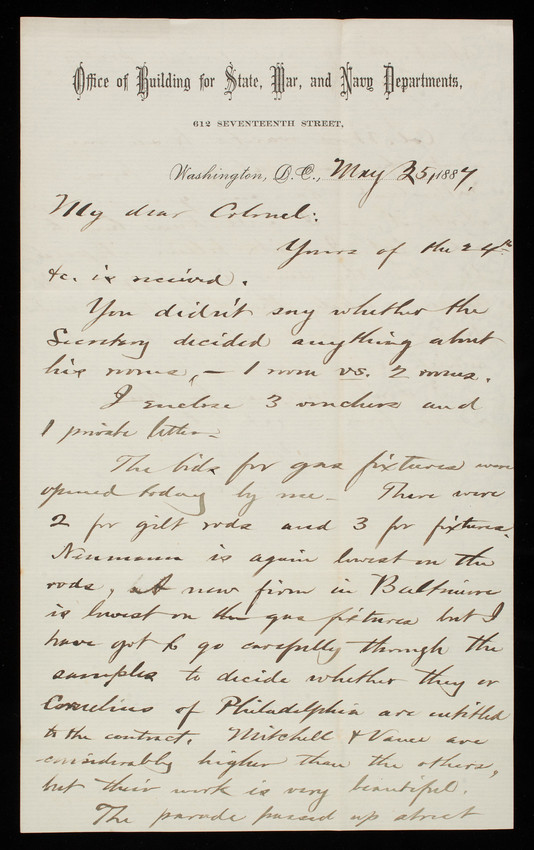 Office of Building for State, War, and Navy Departments,
612 SEVENTEENTH STREET,
Washington, D.C., May 25, 1887.
My dear Colonel:
Yours of the 24th
&c. is received.
You didn't say whether the
Secretary decided anything about
his rooms, – 1 room vs. 2 rooms.
I enclose 3 vouchers and
1 private letter –
The bids for gas fixtures were
opened today by me – There were
2 for gilt rods and 3 for fixtures.
Neumann is again lowest on the
rods, A new firm in Baltimore
is lowest on the gas fixtures but I
have got to go carefully through the
samples to decide whether they or
Cornelius of Philadelphia are entitled
to the contract. Mitchell & Vance are
considerably higher than the others,
but their work is very beautiful.
The parade passed up street